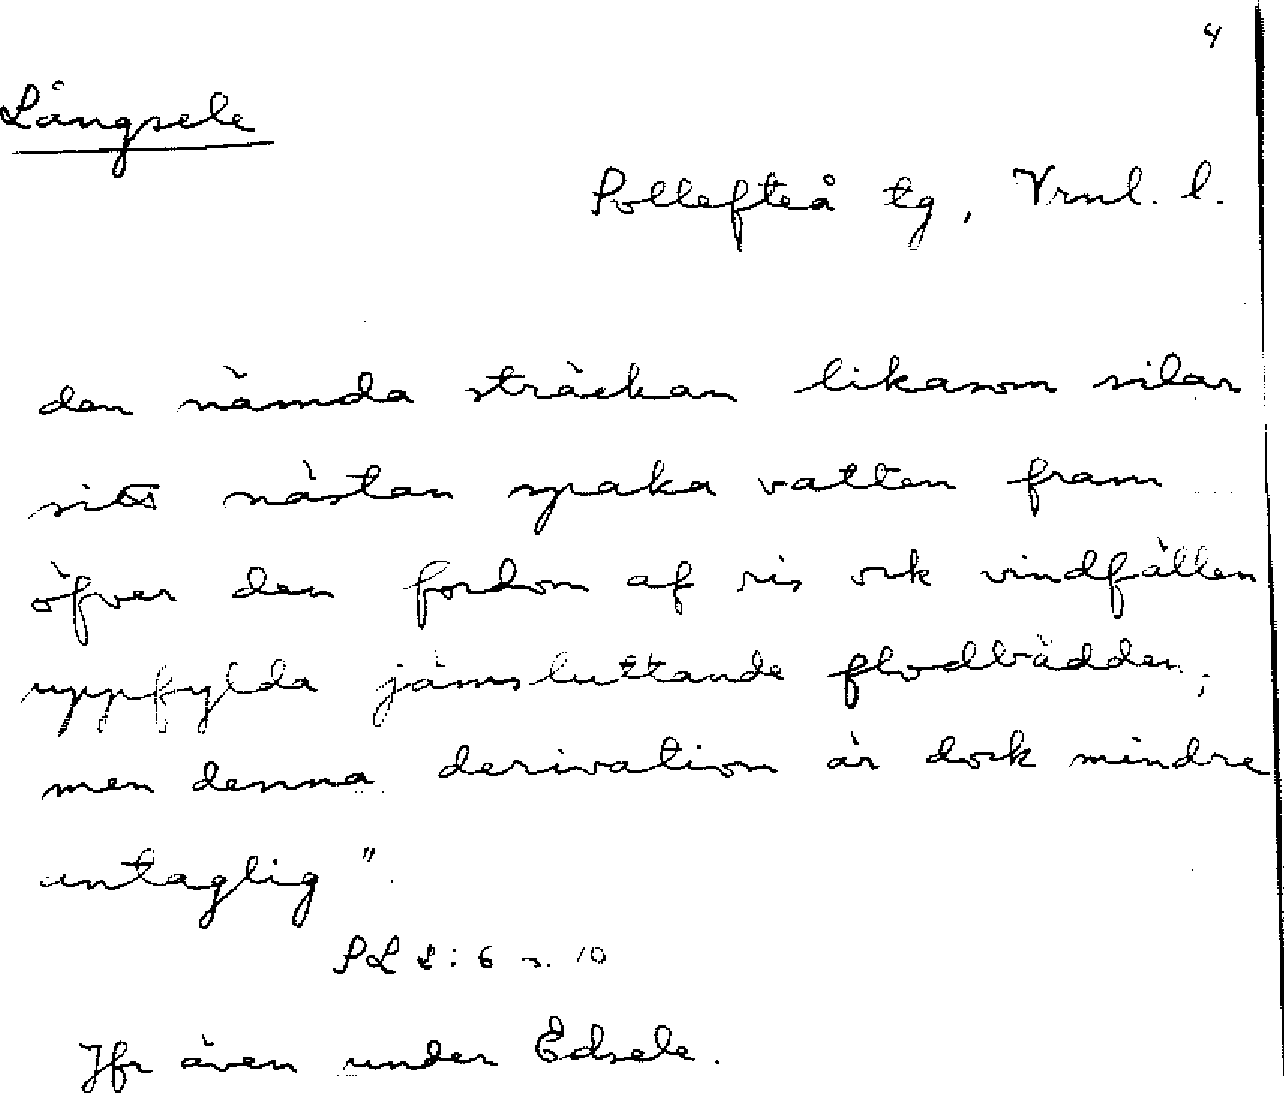 4
Långsele
Sollefteå tg, Vrnl. l.
den nämda sträckan likasom silar
sitt nästan spaka vatten fram
öfver den fordom af ris ock vindfällen
uppfylda jämsluttande flodbädden,
men denna derivation är dock mindre
antaglig".
SL 2:6 s. 10
Jfr även under Edsele.